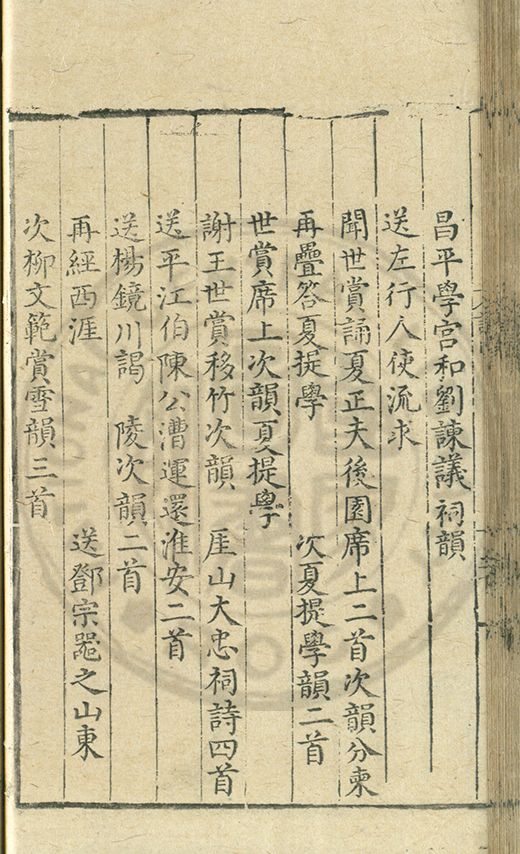 昌平學宮和劉諫議祠韻
送左行人使流求
聞世賞誦夏正夫後園席上二首次韻分柬
再疊答夏提學　次夏提學韻二首
世賞席上次韻夏提學
謝王世賞移竹次韻　厓山大忠祠詩四首
送平江伯陳公漕運還淮安二首
送楊鏡川謁　陵次韻二首
再經西涯　送鄧宗器之山東
次柳文範賞雪韻三首